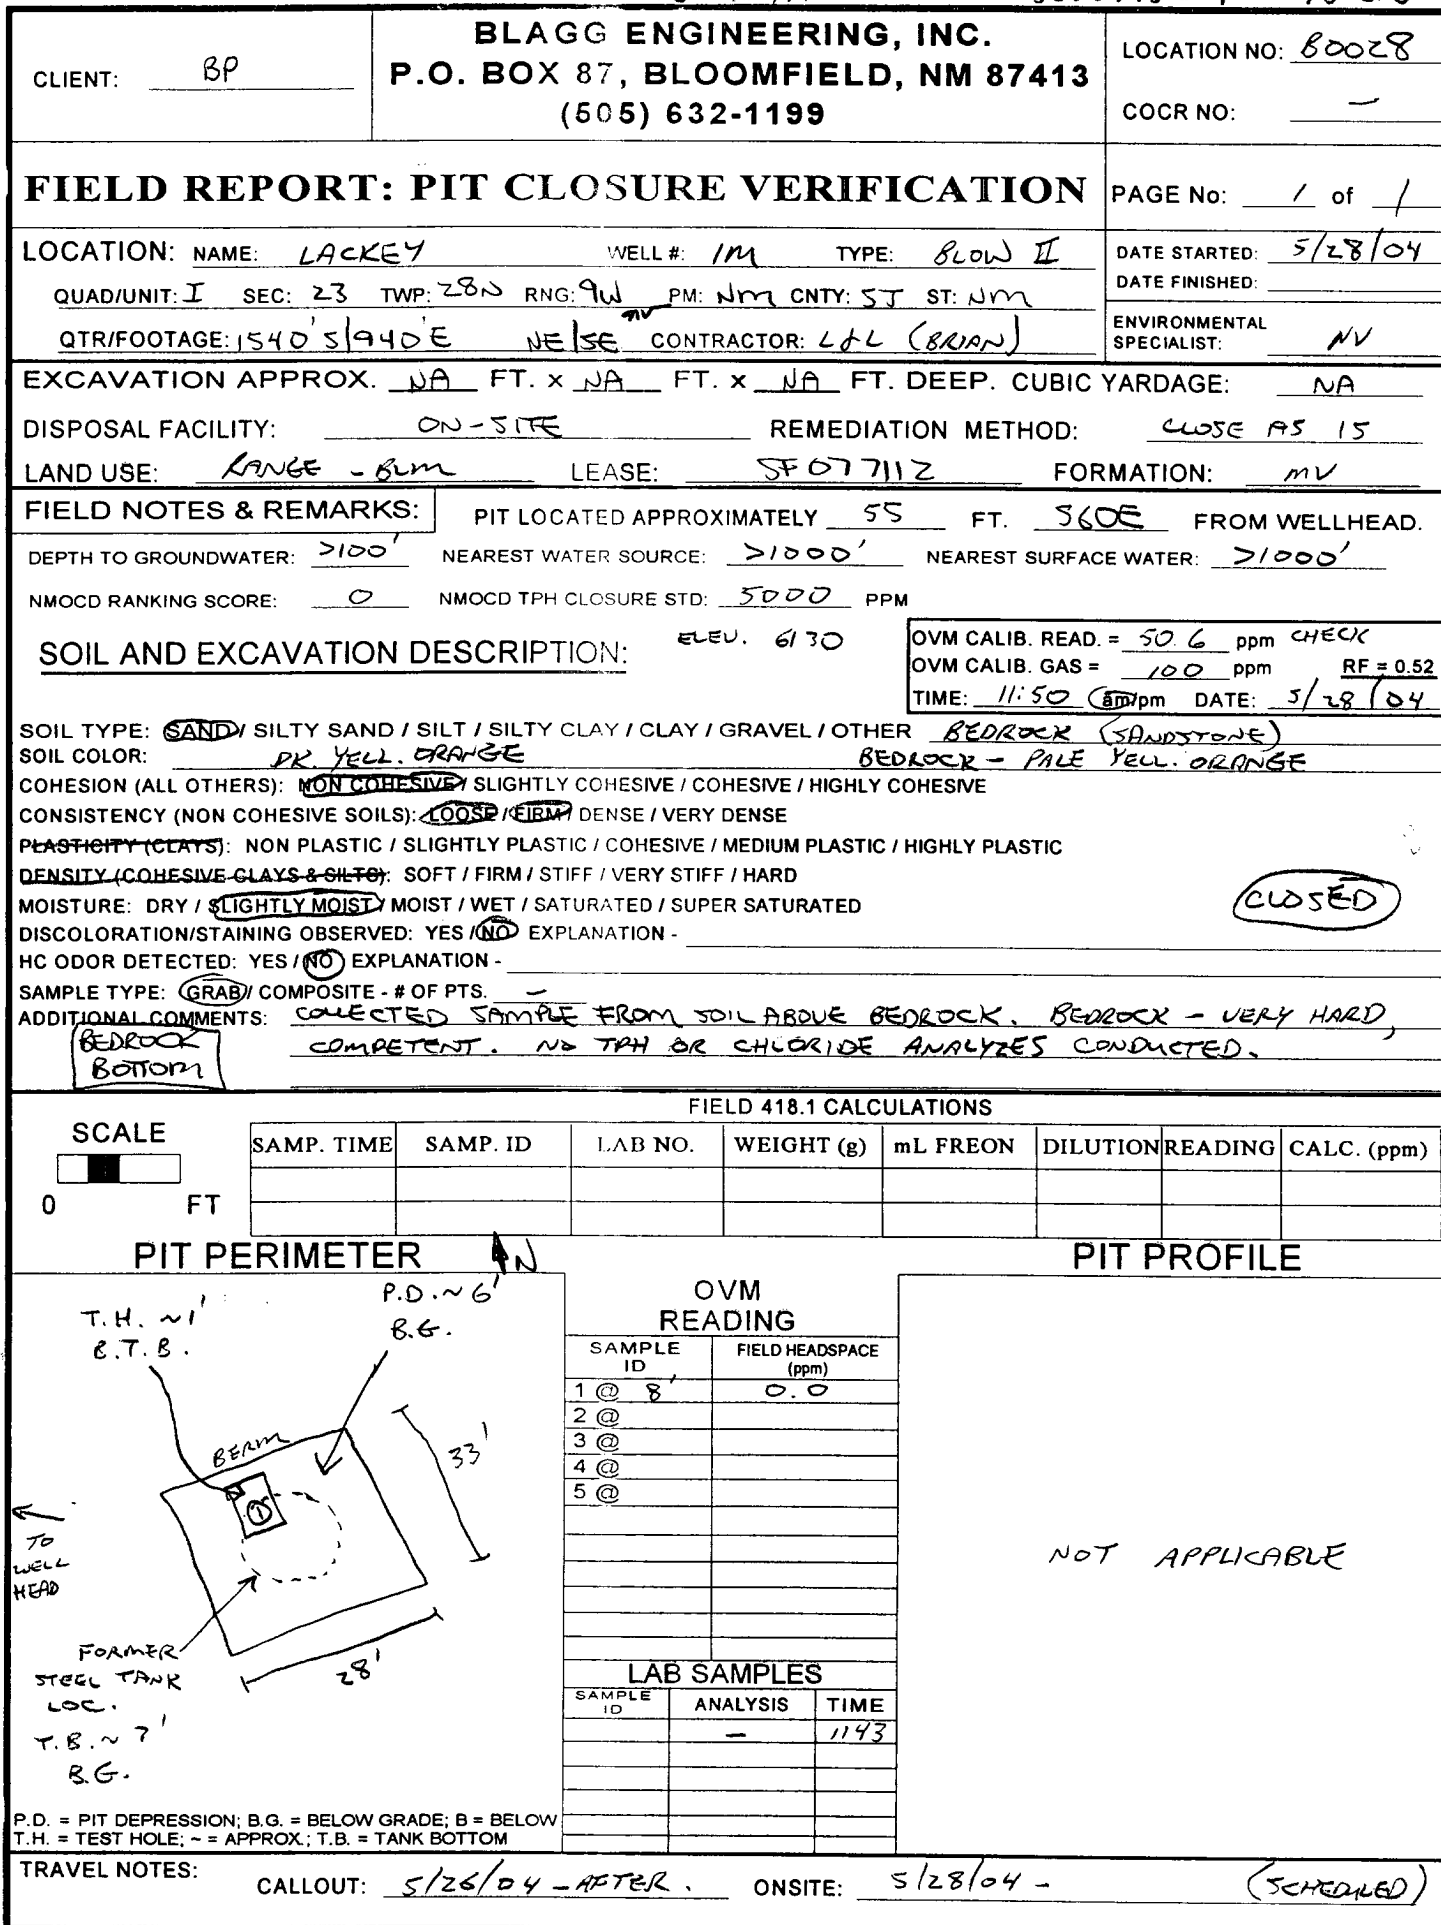 BLAGG ENGINEERING, INC.
P.O. BOX 87, BLOOMFIELD, NM 87413
(505) 632-1199
CLIENT: BP
LOCATION NO: B0028
COCR NO: –
FIELD REPORT: PIT CLOSURE VERIFICATION
PAGE No: 1 of 1
LOCATION: NAME: LACKEY WELL #: 1M TYPE: BLOW II
QUAD/UNIT: I SEC: 23 TWP: 28N RNG: 9W PM: NM CNTY: SJ ST: NM
QTR/FOOTAGE: 1540'S/940'E NE/SE CONTRACTOR: L&L (BRIAN)
DATE STARTED: 5/28/04
DATE FINISHED:
ENVIRONMENTAL
SPECIALIST: NV
EXCAVATION APPROX. NA FT. x NA FT. x NA FT. DEEP. CUBIC YARDAGE: NA
DISPOSAL FACILITY: ON-SITE REMEDIATION METHOD: CLOSE AS IS
LAND USE: RANGE - BLM LEASE: SF 077112 FORMATION: MV
FIELD NOTES & REMARKS: PIT LOCATED APPROXIMATELY 55 FT. S60E FROM WELLHEAD.
DEPTH TO GROUNDWATER: >100' NEAREST WATER SOURCE: >1000' NEAREST SURFACE WATER: >1000'
NMOCD RANKING SCORE: 0 NMOCD TPH CLOSURE STD: 5000 PPM
SOIL AND EXCAVATION DESCRIPTION: ELEV. 6130
OVM CALIB. READ. = 50.6 ppm CHECK
OVM CALIB. GAS = 100 ppm RF = 0.52
TIME: 11:50 am/pm DATE: 5/28/04
SOIL TYPE: SAND / SILTY SAND / SILT / SILTY CLAY / CLAY / GRAVEL / OTHER BEDROCK (SANDSTONE)
SOIL COLOR: DK. YELL. ORANGE BEDROCK - PALE YELL. ORANGE
COHESION (ALL OTHERS): NON COHESIVE / SLIGHTLY COHESIVE / COHESIVE / HIGHLY COHESIVE
CONSISTENCY (NON COHESIVE SOILS): LOOSE / FIRM / DENSE / VERY DENSE
PLASTICITY (CLAYS): NON PLASTIC / SLIGHTLY PLASTIC / COHESIVE / MEDIUM PLASTIC / HIGHLY PLASTIC
DENSITY (COHESIVE CLAYS & SILTS): SOFT / FIRM / STIFF / VERY STIFF / HARD
MOISTURE: DRY / SLIGHTLY MOIST / MOIST / WET / SATURATED / SUPER SATURATED
CLOSED
DISCOLORATION/STAINING OBSERVED: YES / NO EXPLANATION -
HC ODOR DETECTED: YES / NO EXPLANATION -
SAMPLE TYPE: GRAB / COMPOSITE - # OF PTS. –
ADDITIONAL COMMENTS: COLLECTED SAMPLE FROM SOIL ABOVE BEDROCK. BEDROCK - VERY HARD,
COMPETENT. NO TPH OR CHLORIDE ANALYZES CONDUCTED.
BEDROCK
BOTTOM
FIELD 418.1 CALCULATIONS
SCALE
0 FT
SAMP. TIME SAMP. ID LAB NO. WEIGHT (g) mL FREON DILUTION READING CALC. (ppm)
PIT PERIMETER N
T.H. ~1'
B.T.B.
P.D. ~ 6'
B.G.
BERM
33'
1
TO
WELL
HEAD
FORMER
STEEL TANK
LOC.
28'
T.B. ~ 7'
B.G.
P.D. = PIT DEPRESSION; B.G. = BELOW GRADE; B = BELOW
T.H. = TEST HOLE; ~ = APPROX.; T.B. = TANK BOTTOM
OVM
READING
SAMPLE ID FIELD HEADSPACE (ppm)
1 @ 8' 0.0
2 @
3 @
4 @
5 @
LAB SAMPLES
SAMPLE ID ANALYSIS TIME
– 1143
PIT PROFILE
NOT APPLICABLE
TRAVEL NOTES: CALLOUT: 5/26/04 - AFTER. ONSITE: 5/28/04 - (SCHEDULED)